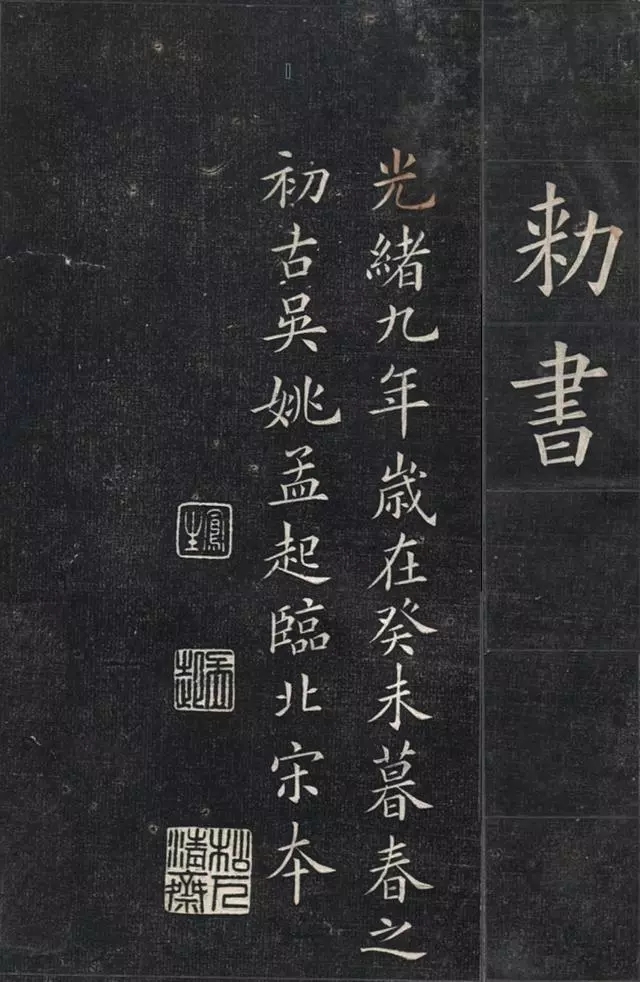 勅書
光緒九年歲在癸未暮春之
初古吳姚孟起臨北宋本
鳳生
孟起
松下清齋